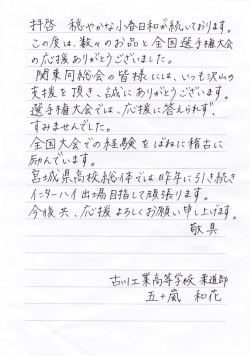 拝啓　穏やかな小春日和が続いております。
この度は、数々のお品と全国選手権大会
の応援ありがとうございました。
関東同総会の皆様にはいつも沢山の
支援を頂き、誠にありがとうございます。
選手権大会では、応援に答えられず、
すみませんでした。
全国大会での経験をばねに稽古に
励んでいます。
宮城県高校総体では昨年に引き続き
インターハイ出場目指して頑張ります。
今後共、応援よろしくお願い申し上げます。
敬具
古川工業高等学校 柔道部
五十嵐　和花